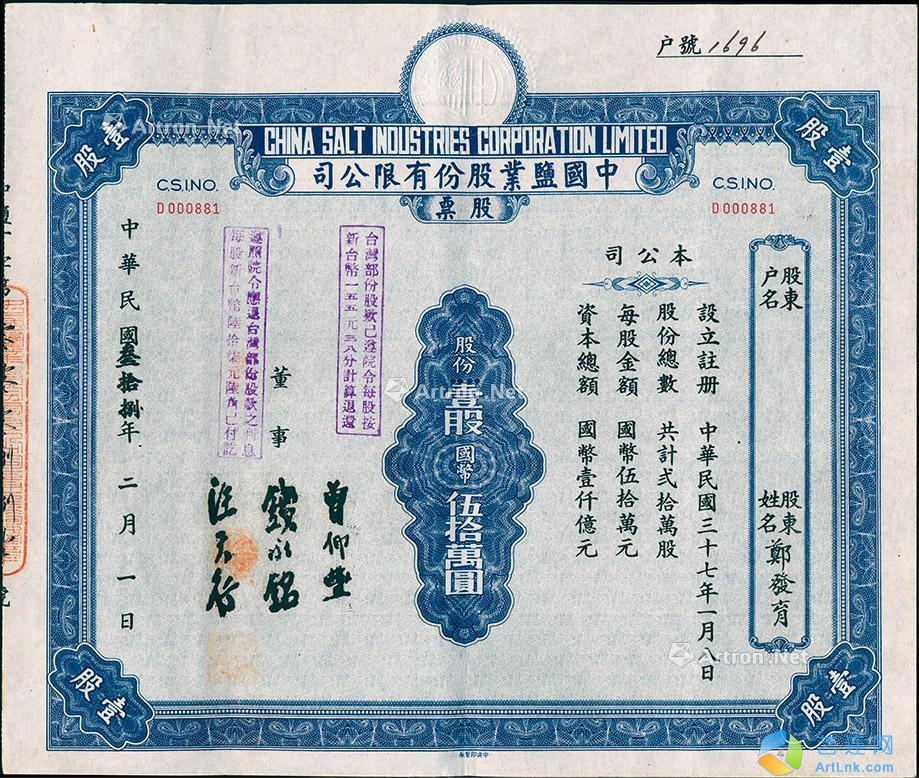 户號 1696
CHINA SALT INDUSTRIES CORPORATION LIMITED
司公限有份股業鹽國中
票股
壹股
股壹
C.S.I.NO.
D000881
C.S.I.NO.
D000881
股東户名
股東姓名 鄭發育
本公司
設立註册 中華民國三十七年一月八日
股份總數 共計貳拾萬股
每股金額 國幣伍拾萬元
資本總額 國幣壹仟億元
股份壹股國幣伍拾萬圓
台灣部份股欵已遵院令每股按
新台幣一五五元三八分計算退還
遵照院令應退台灣部份股欵之利息
每股新台幣陸拾柒元陸角已付訖
董事
曾仰豐
錢永銘
中華民國叁拾捌年二月一日
壹股
股壹
中央印製廠
Artron.Net
Artron.Net
Artron.Net
ArtLnk.com